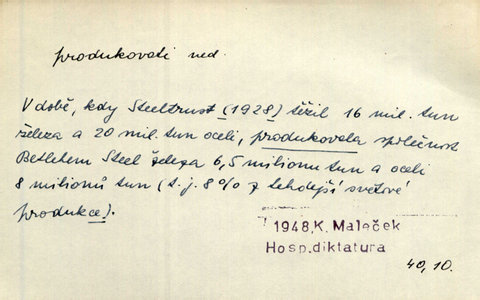 produkovati ned.
V době, kdy Steeltrust (1928) těžil 16 mil. tun
železa a 20 mil. tun oceli, produkovala společnost
Betlehem Steel železa 6,5 milionu tun a oceli
8 milionů tun (t. j. 8% z tehdejší světové
produkce).
1948, K. Maleček
Hosp. diktatura
40, 10.